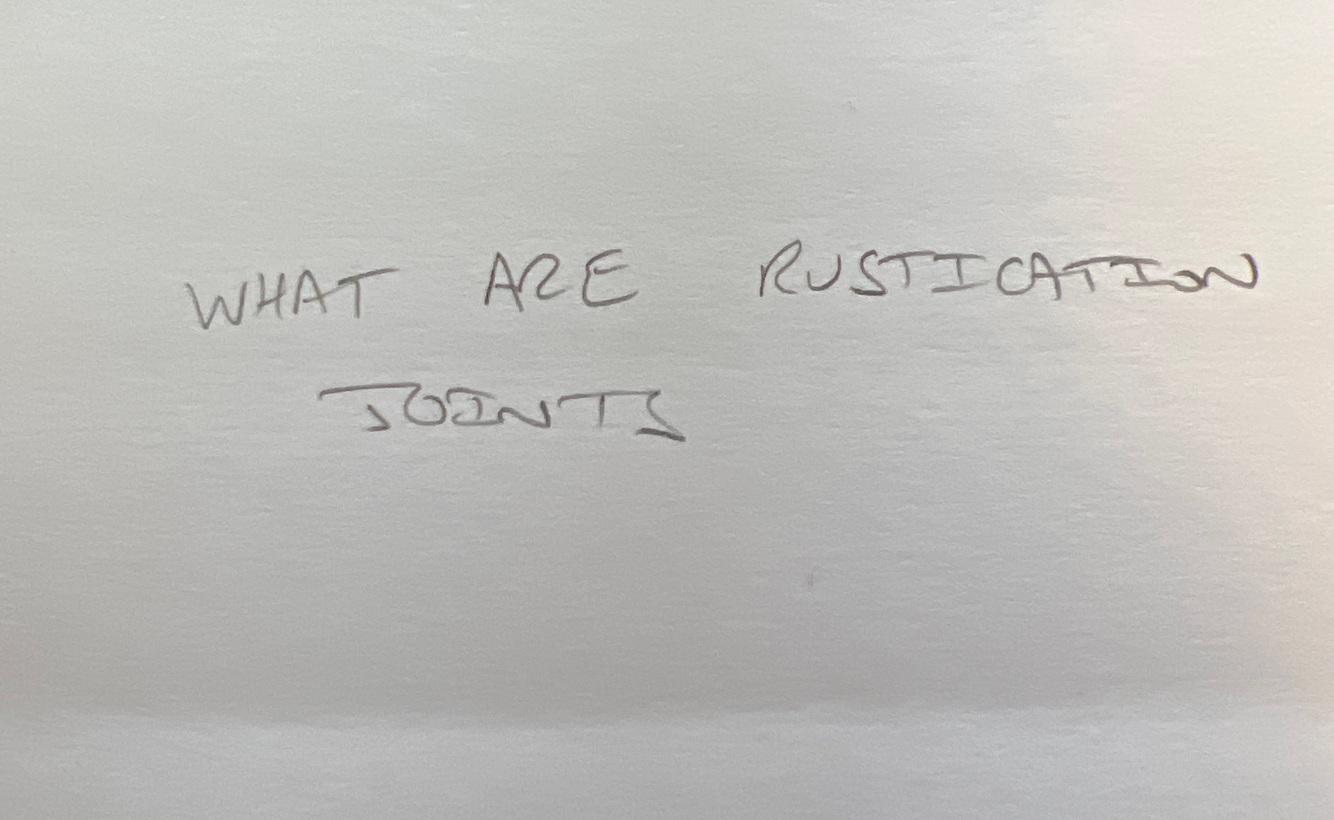 WHAT ARE RUSTICATION
JOINTS